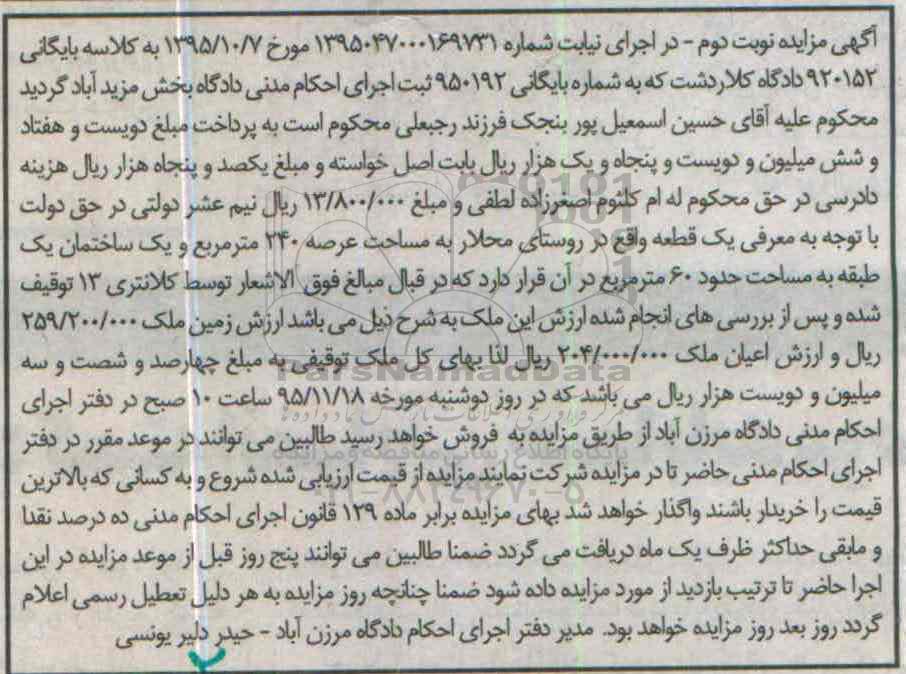 آگهی مزایده نوبت دوم - در اجرای نیابت شماره ۱۳۹۵۰۴۷۰۰۰۱۶۹۷۳۱ مورخ ۱۳۹۵/۱۰/۷ به کلاسه بایگانی
۹۲۰۱۵۲ دادگاه کلاردشت که به شماره بایگانی ۹۵۰۱۹۲ ثبت اجرای احکام مدنی دادگاه بخش مزید آباد گردید
محکوم علیه آقای حسین اسمعیل پور بنجک فرزند رجبعلی محکوم است به پرداخت مبلغ دویست و هفتاد
و شش میلیون و دویست و پنجاه و یک هزار ریال بابت اصل خواسته و مبلغ یکصد و پنجاه هزار ریال هزینه
دادرسی در حق محکوم له ام کلثوم اصغرزاده لطفی و مبلغ ۱۳/۸۰۰/۰۰۰ ریال نیم عشر دولتی در حق دولت
با توجه به معرفی یک قطعه واقع در روستای محلار به مساحت عرصه ۲۴۰ مترمربع و یک ساختمان یک
طبقه به مساحت حدود ۶۰ مترمربع در آن قرار دارد که در قبال مبالغ فوق الاشعار توسط کلانتری ۱۳ توقیف
شده و پس از بررسی های انجام شده ارزش این ملک به شرح ذیل می باشد ارزش زمین ملک ۲۵۹/۲۰۰/۰۰۰
ریال و ارزش اعیان ملک ۲۰۴/۰۰۰/۰۰۰ ریال لذا بهای کل ملک توقیفی به مبلغ چهارصد و شصت و سه
میلیون و دویست هزار ریال می باشد که در روز دوشنبه مورخه ۹۵/۱۱/۱۸ ساعت ۱۰ صبح در دفتر اجرای
احکام مدنی دادگاه مرزن آباد از طریق مزایده به فروش خواهد رسید طالبین می توانند در موعد مقرر در دفتر
اجرای احکام مدنی حاضر تا در مزایده شرکت نمایند مزایده از قیمت ارزیابی شده شروع و به کسانی که بالاترین
قیمت را خریدار باشند واگذار خواهد شد بهای مزایده برابر ماده ۱۲۹ قانون اجرای احکام مدنی ده درصد نقدا
و مابقی حداکثر ظرف یک ماه دریافت می گردد ضمنا طالبین می توانند پنج روز قبل از موعد مزایده در این
اجرا حاضر تا ترتیب بازدید از مورد مزایده داده شود ضمنا چنانچه روز مزایده به هر دلیل تعطیل رسمی اعلام
گردد روز بعد روز مزایده خواهد بود. مدیر دفتر اجرای احکام دادگاه مرزن آباد - حیدر دلیر یونسی
ParsNamadData
پایگاه اطلاع رسانی مناقصه و مزایده
۰۲۱-۸۸۳۴۹۶۷۰-۵